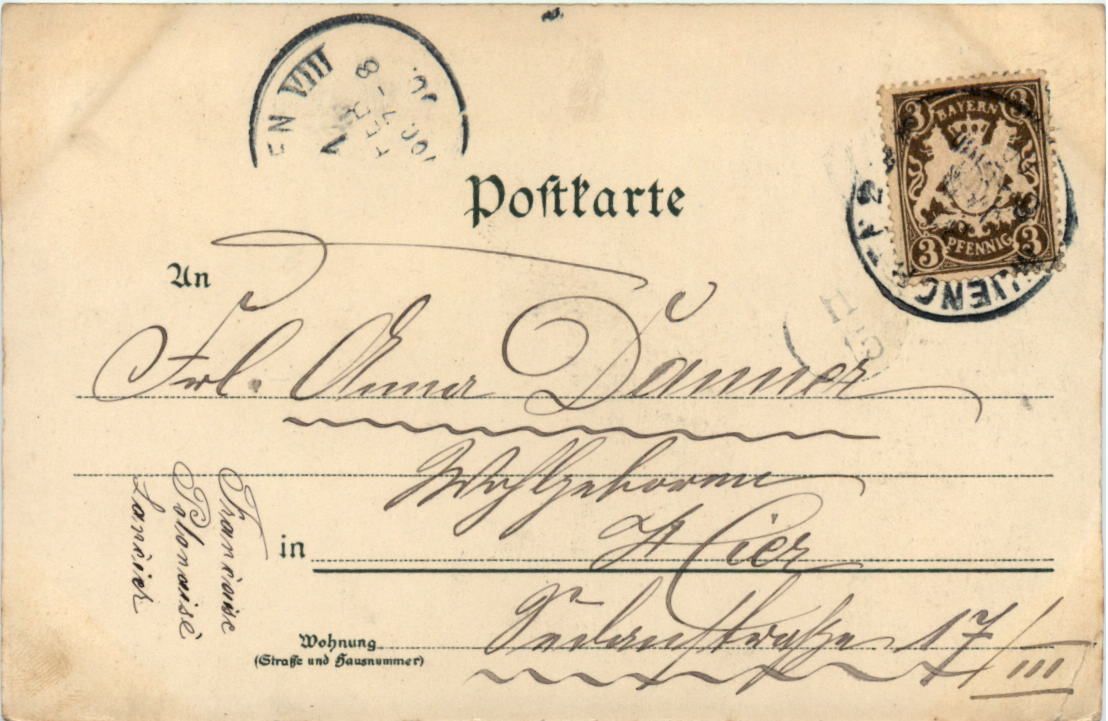 EN VIII
FEB
8
BAYERN
3 3
3 PFENNIG 3
Postkarte
An
Frl. Anna Danner
Wohlgeboren
in Hier
Wohnung Sedanstraße 17/III
(Straße und Hausnummer)
Francaise
Polonaise
Lancier